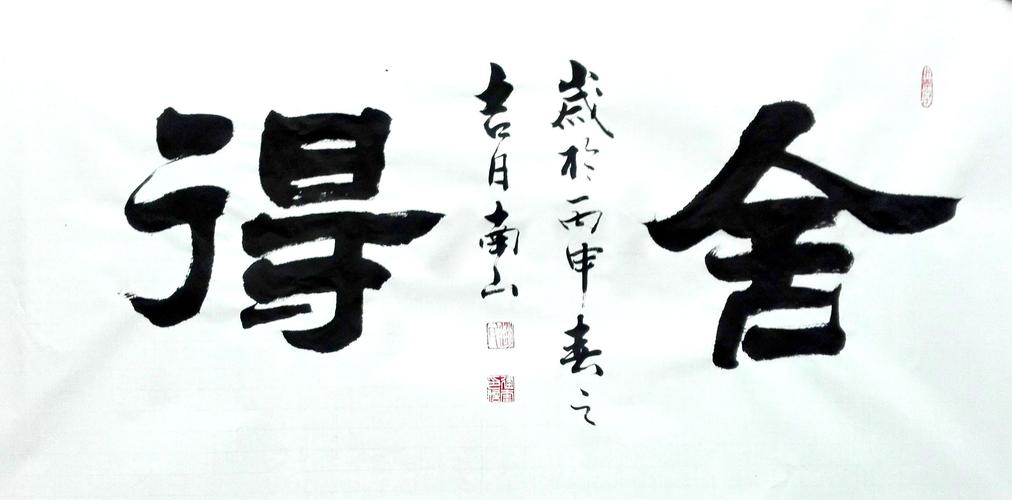 舍
歲於丙申春之
吉月南山
得